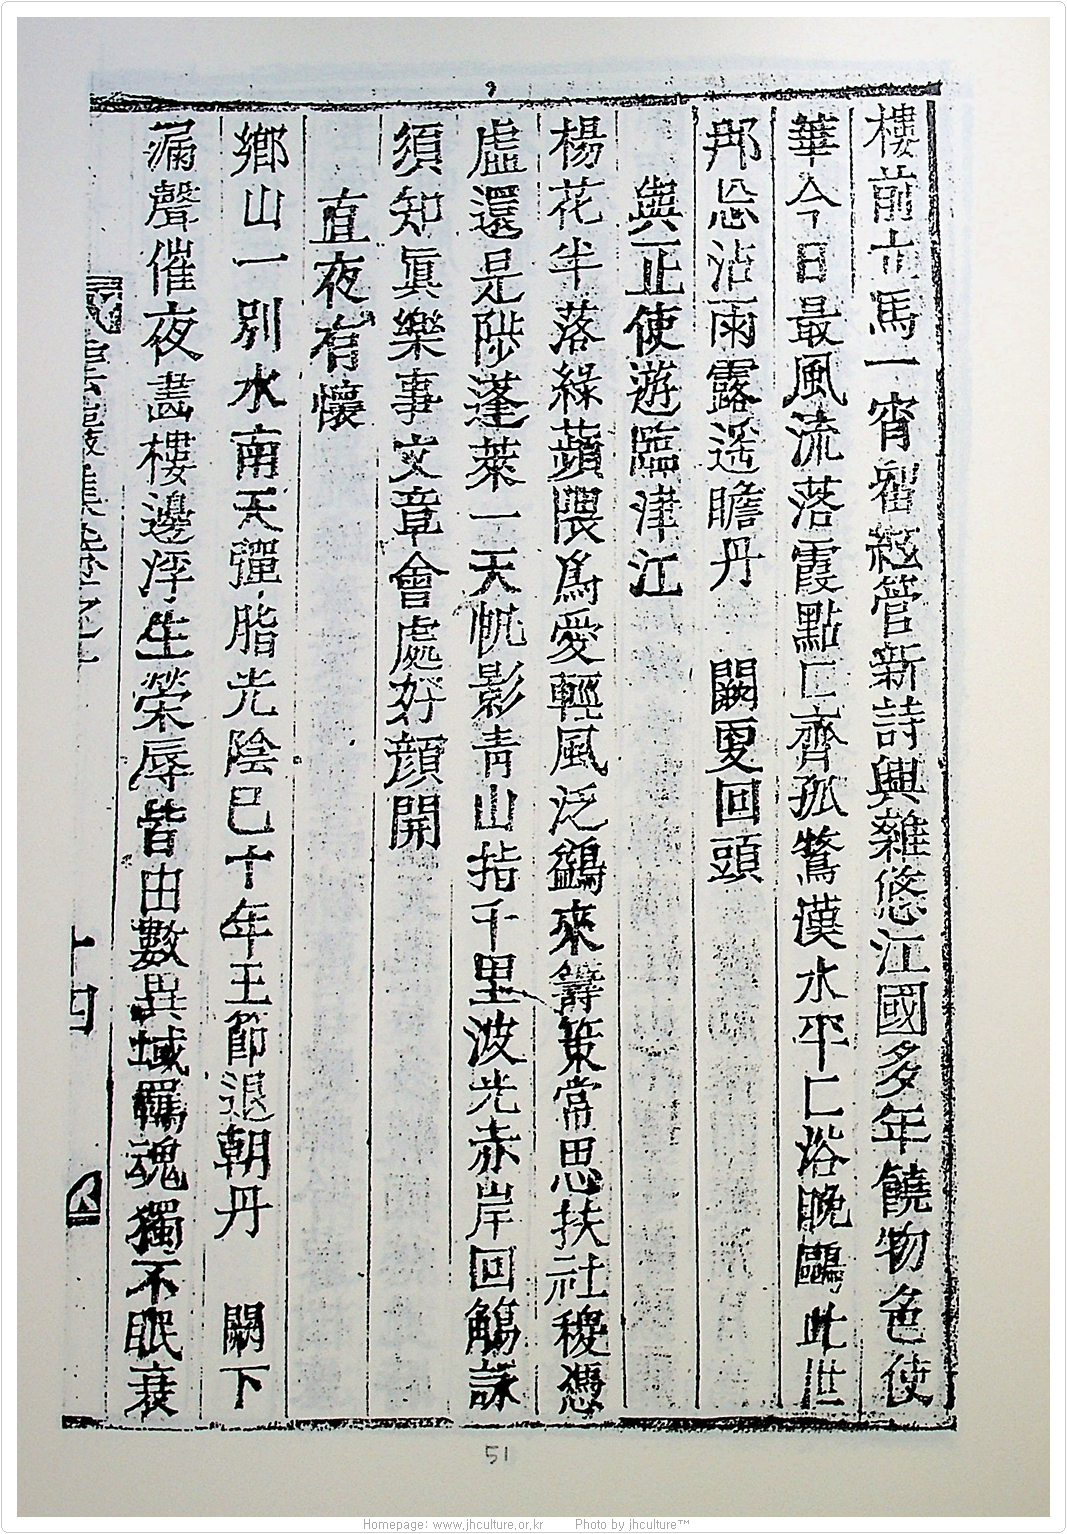 樓前立馬一宵留絃管新詩興雜悠江國多年饒物色使
華今日最風流落霞點匕齊孤鶩漢水平匕浴晩鷗此世
那忘沾雨露遥瞻丹 闕更回頭
與正使遊臨津江
楊花半落綠蘋隈爲愛輕風泛鷁來籌策常思扶社稷憑
虛還是陟蓬萊一天帆影靑山指千里波光赤岸回觴詠
須知眞樂事文章會處好顔開
直夜有懷
鄕山一別水南天彈指光陰已十年王節退朝丹 闕下
漏聲催夜畵樓邊浮生榮辱皆由數異域羈魂獨不眠衰
巖集卷之一
十四
51
Homepage: www.jhculture.or.kr Photo by jhculture™